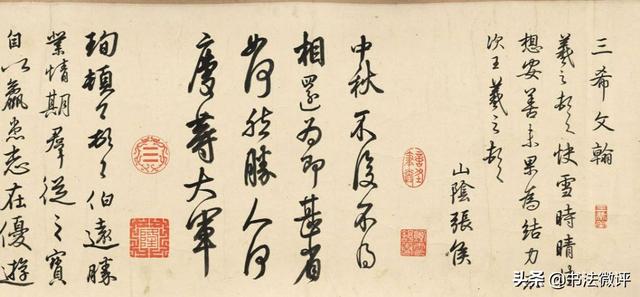 三希文翰
羲之頓首快雪時晴佳
想安善未果為結力
次王羲之頓首
山陰張侯
中秋不復不得
相還為即甚省
如何然勝人何
慶等大軍
珣頓首頓首伯遠勝
業情期羣從之寶
自以羸患志在優遊
头条 @书法微评